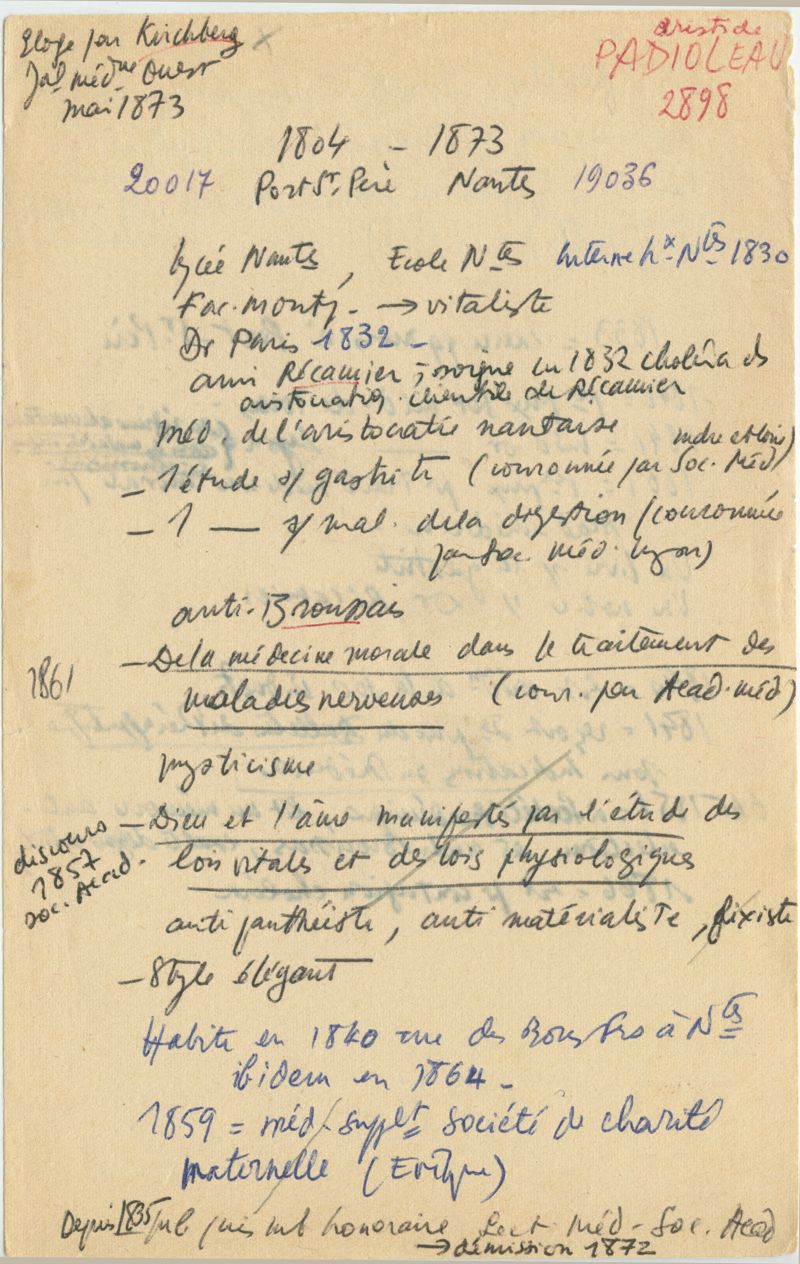 Eloge par Kirchberg
Jal médque Ouest
mai 1873
aristide
PADIOLEAU
2898
1804 - 1873
20017 Port St. Père Nantes 19036
lycée Nantes, Ecole Ntes Interne hx Ntes 1830
Fac. Montp. → vitaliste
Dr Paris 1832 -
ami Récamier ; soigne en 1832 choléra ds
aristocratiq. clientèle de Récamier
Méd. de l'aristocratie nantaise
- 1 étude s/ gastrite (couronnée par Soc. Méd
Indre et Loire)
- 1 — s/ mal. de la digestion (couronnée
par Soc. Méd. Lyon)
anti-Broussais
1861
- De la médecine morale dans le traitement des
maladies nerveuses (cour. par Acad. méd)
mysticisme
- Dieu et l'âme manifestés par l'étude des
lois vitales et des lois physiologiques
discours
1857
Soc. Acad.
anti panthéiste, anti matérialiste, fixiste
- Style élégant
Habite en 1840 rue des à Ntes
ibidem en 1864 -
1859 = méd. supplt Société de charité
maternelle (Evêque)
Depuis 1835 puis mb honoraire Sect. Méd - Soc. Acad
→ démission 1872